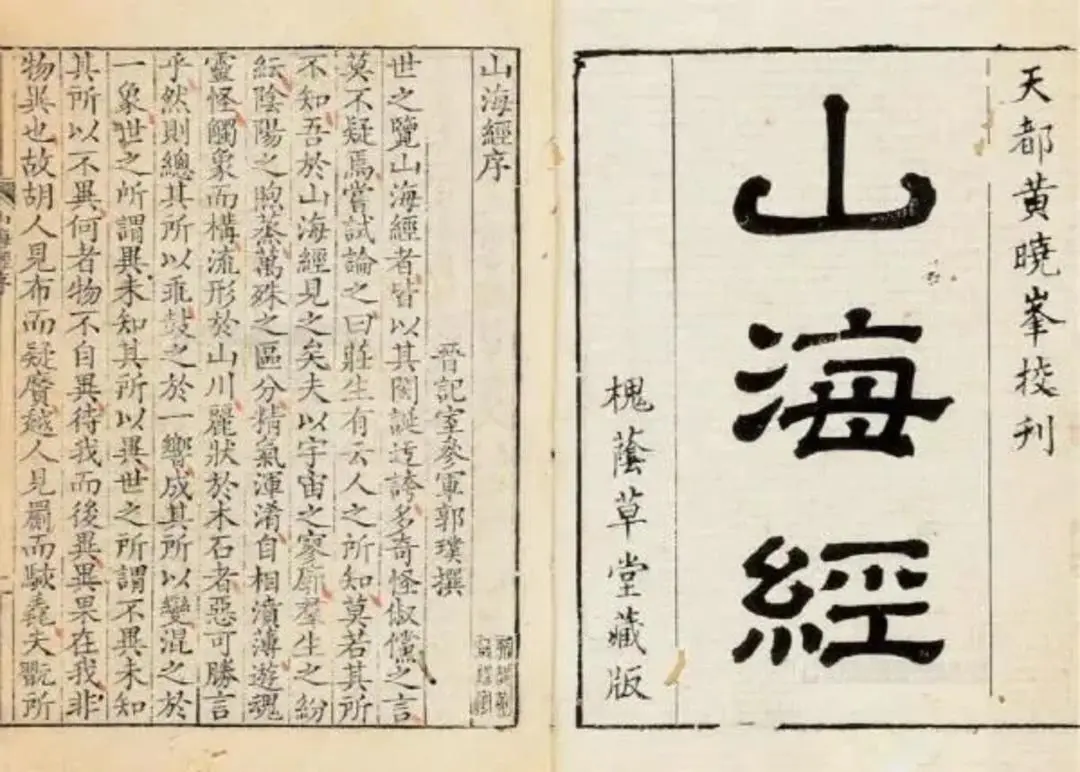 天都黄曉峯挍刋
山海經
槐蔭草堂藏版
山海經序
晉記室參軍郭璞撰
世之覽山海經者皆以其閎誕迃誇多奇怪俶儻之言
莫不疑焉嘗試論之曰莊生有云人之所知莫若其所
不知吾於山海經見之矣夫以宇宙之寥廓羣生之紛
紜陰陽之煦蒸萬殊之區分精氣渾淆自相濆薄遊魂
靈怪觸象而構流形於山川麗狀於木石者惡可勝言
乎然則總其所以乖鼓之於一響成其所以變混之於
一象世之所謂異未知其所以異世之所謂不異未知
其所以不異何者物不自異待我而後異異果在我非
物異也故胡人見布而疑黂越人見罽而駭毳夫翫所